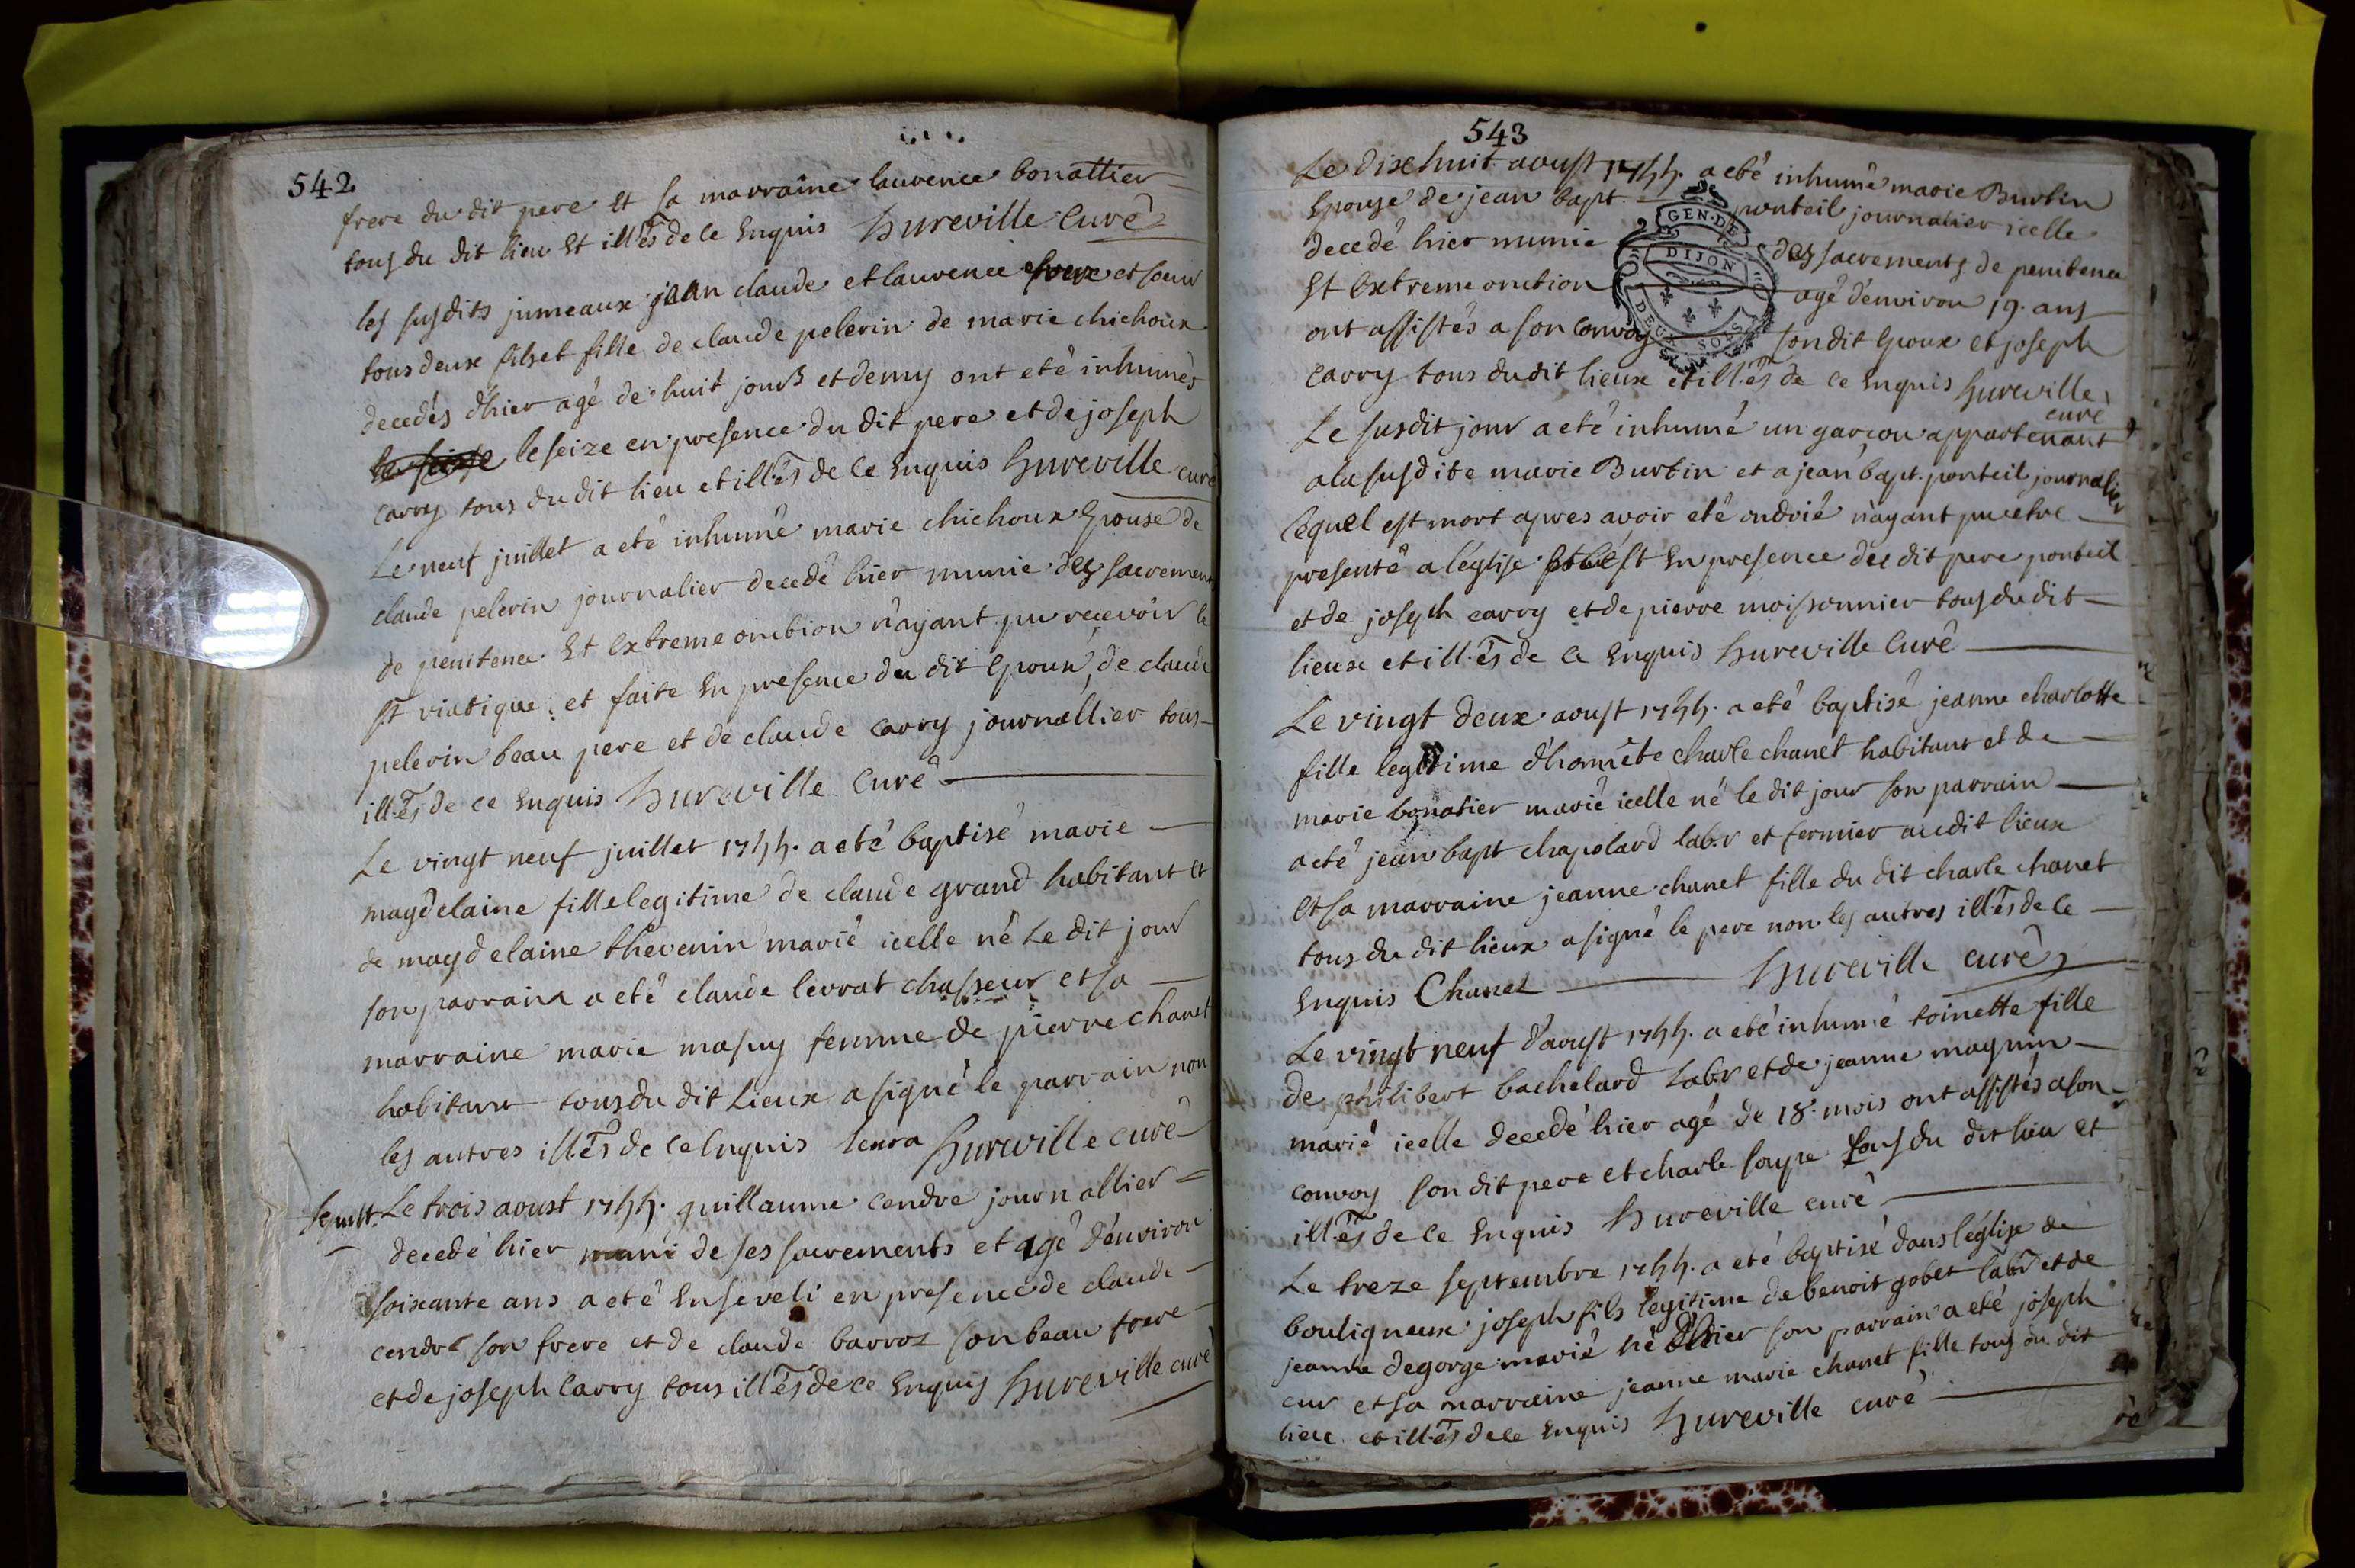 542
frere du dit pere Et sa marraine laurence bonattier
tous du dit lieu Et illẽs de ce Enquis hureville Curé
les susdits jumeaux jean claude et laurence frere et soeur
tous deux fils et fille de claude pelerin de marie chichoux
decedés d'hier agé de huit jours et demy ont eté inhumés
le seize le seize en presence du dit pere et de joseph
carry tous du dit lieu et ill-ẽs de ce Enquis hureville curé
Le neuf juillet a eté inhumé marie chichoux Epouse de
claude pelerin journalier decedé hier munie des sacrement
de penitence Et Extreme onction n'ayant pu recevoir le
St viatique et faite En presence du dit Epoux, de claude
pelerin beau pere et de claude carry journallier tous
ill-ẽs de ce Enquis hureville Curé
Le vingt neuf juillet 1744. a eté baptisé marie
magdelaine fille legitime de claude grand habitant Et
de magdelaine thevenin marié icelle né Le dit jour
son parrain a eté claude levrat chasseur et sa
marraine marie masuy femme de pierre chanet
habitant tous du dit Lieux a signé le parrain non
les autres illẽs de ce Enquis hureville curé
sepult. Le trois aoust 1744. guillaume cendre journallier
decedé hier muni de ses sacrements et agé d'environ
soixante ans a eté Enseveli en presence de claude
cendre son frere et de claude barroz son beau frere
et de joseph Carry tous illẽs de ce Enquis hureville curé
543
Le dixehuit aoust 1744. a eté inhumé marie Burtin
Epouse de jean bapt ponteil journalier icelle
decedé hier munie des sacrements de penitence
Et Extreme onction agé d'environ 19. ans
ont assistés a son convoy son dit Epoux et joseph
carry tous du dit lieux et ill-ẽs de ce Enquis hureville
curé
GEN·DE
DIJON
DEUX SOLS
Le susdit jour a eté inhumé un garçon appartenant
a la susdite marie Burtin et a jean bapt. ponteil journalier
lequel est mort apres avoir eté ondoié n'ayant pu etre
presenté a l'église En presence du dit pere ponteil
et de joseph carry et de pierre moissonnier tous du dit
lieux et ill-ẽs de ce Enquis hureville Curé
Le vingt deux aoust 1744. a eté baptisé jeanne charlotte
fille legitime d'honnête charle chanet habitant et de
marie bonatier marié icelle né le dit jour son parrain
a eté jean bapt chapolard lab.r et fermier au dit lieux
et sa marraine jeanne chanet fille du dit charle chanet
tous du dit lieux a signé le pere non les autres ill-ẽs de ce
Enquis Chanet hureville curé
Le vingt neuf d'aoust 1744. a eté inhumé toinette fille
de philibert bachelard Lab.r et de jeanne magnin
marié icelle decedé hier agé de 18. mois ont assistés a son
convoy son dit pere et charle soupe tous du dit lieu et
illẽs de ce Enquis hureville curé
Le treze septembre 1744. a eté baptisé dans l'église de
bouligneux joseph fils legitime de benoit gobet labr et de
jeanne degorge marié né d'hier son parrain a eté joseph
cur et sa marraine jeanne marie chanet fille tous du dit
lieu et ill-ẽs de ce Enquis hureville curé